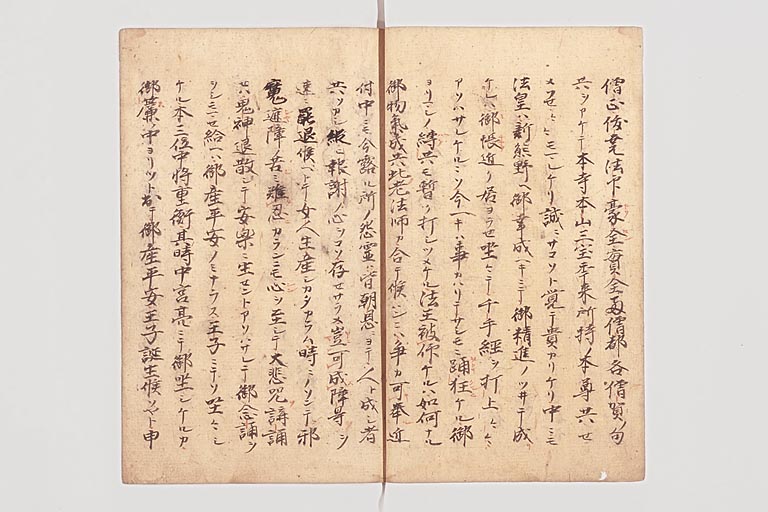 僧正俊尭法印豪全實全両僧都各僧賀ノ句
共ヲアケテ本寺本山三宝年来所持ノ本尊共セ
メフセ〱モミケリ誠ニサコソト覚テ貴カリケリ中ニモ
法皇ハ新熊野ヘ御幸成ヘキニテ御精進ノツイテ成
ケレハ御帳近ク居ヨラセ坐〱テ千手経ヲ打上〱
アソハサレケルニソ今一キハ事カハリテサシモニ踊狂ケル御
ヨリマシノ縛共モ暫ク打シツメケル法王被仰ケルハ如何ナル
御物氣成共此老法師カ合テ候ハンニハ争カ可奉近
付中ニモ今露ルヽ所ノ怨霊ハ皆朝恩ニヨテ人ト成シ者
共ソカシ縦ヒ報謝ノ心ヲコソ存セサラメ豈可成障号ヲ
速ニ罷退候ヘトテ女人生産シカタカラン時ニノソンテ邪
魔遮障シ苦ミ難忍カランニモ心ヲ至シテ大悲呪講誦
セハ鬼神退散シテ安楽ニ生セントアソハサレテ御念誦ヲ
シモミセ給ヘハ御産平安ノミナラス王子ニテソ坐〱シ
ケル本三位中将重衡其時中宮亮ニテ御坐シケルカ
御簾ノ中ヨリツト出テ御産平安王子誕生候ソヤト申